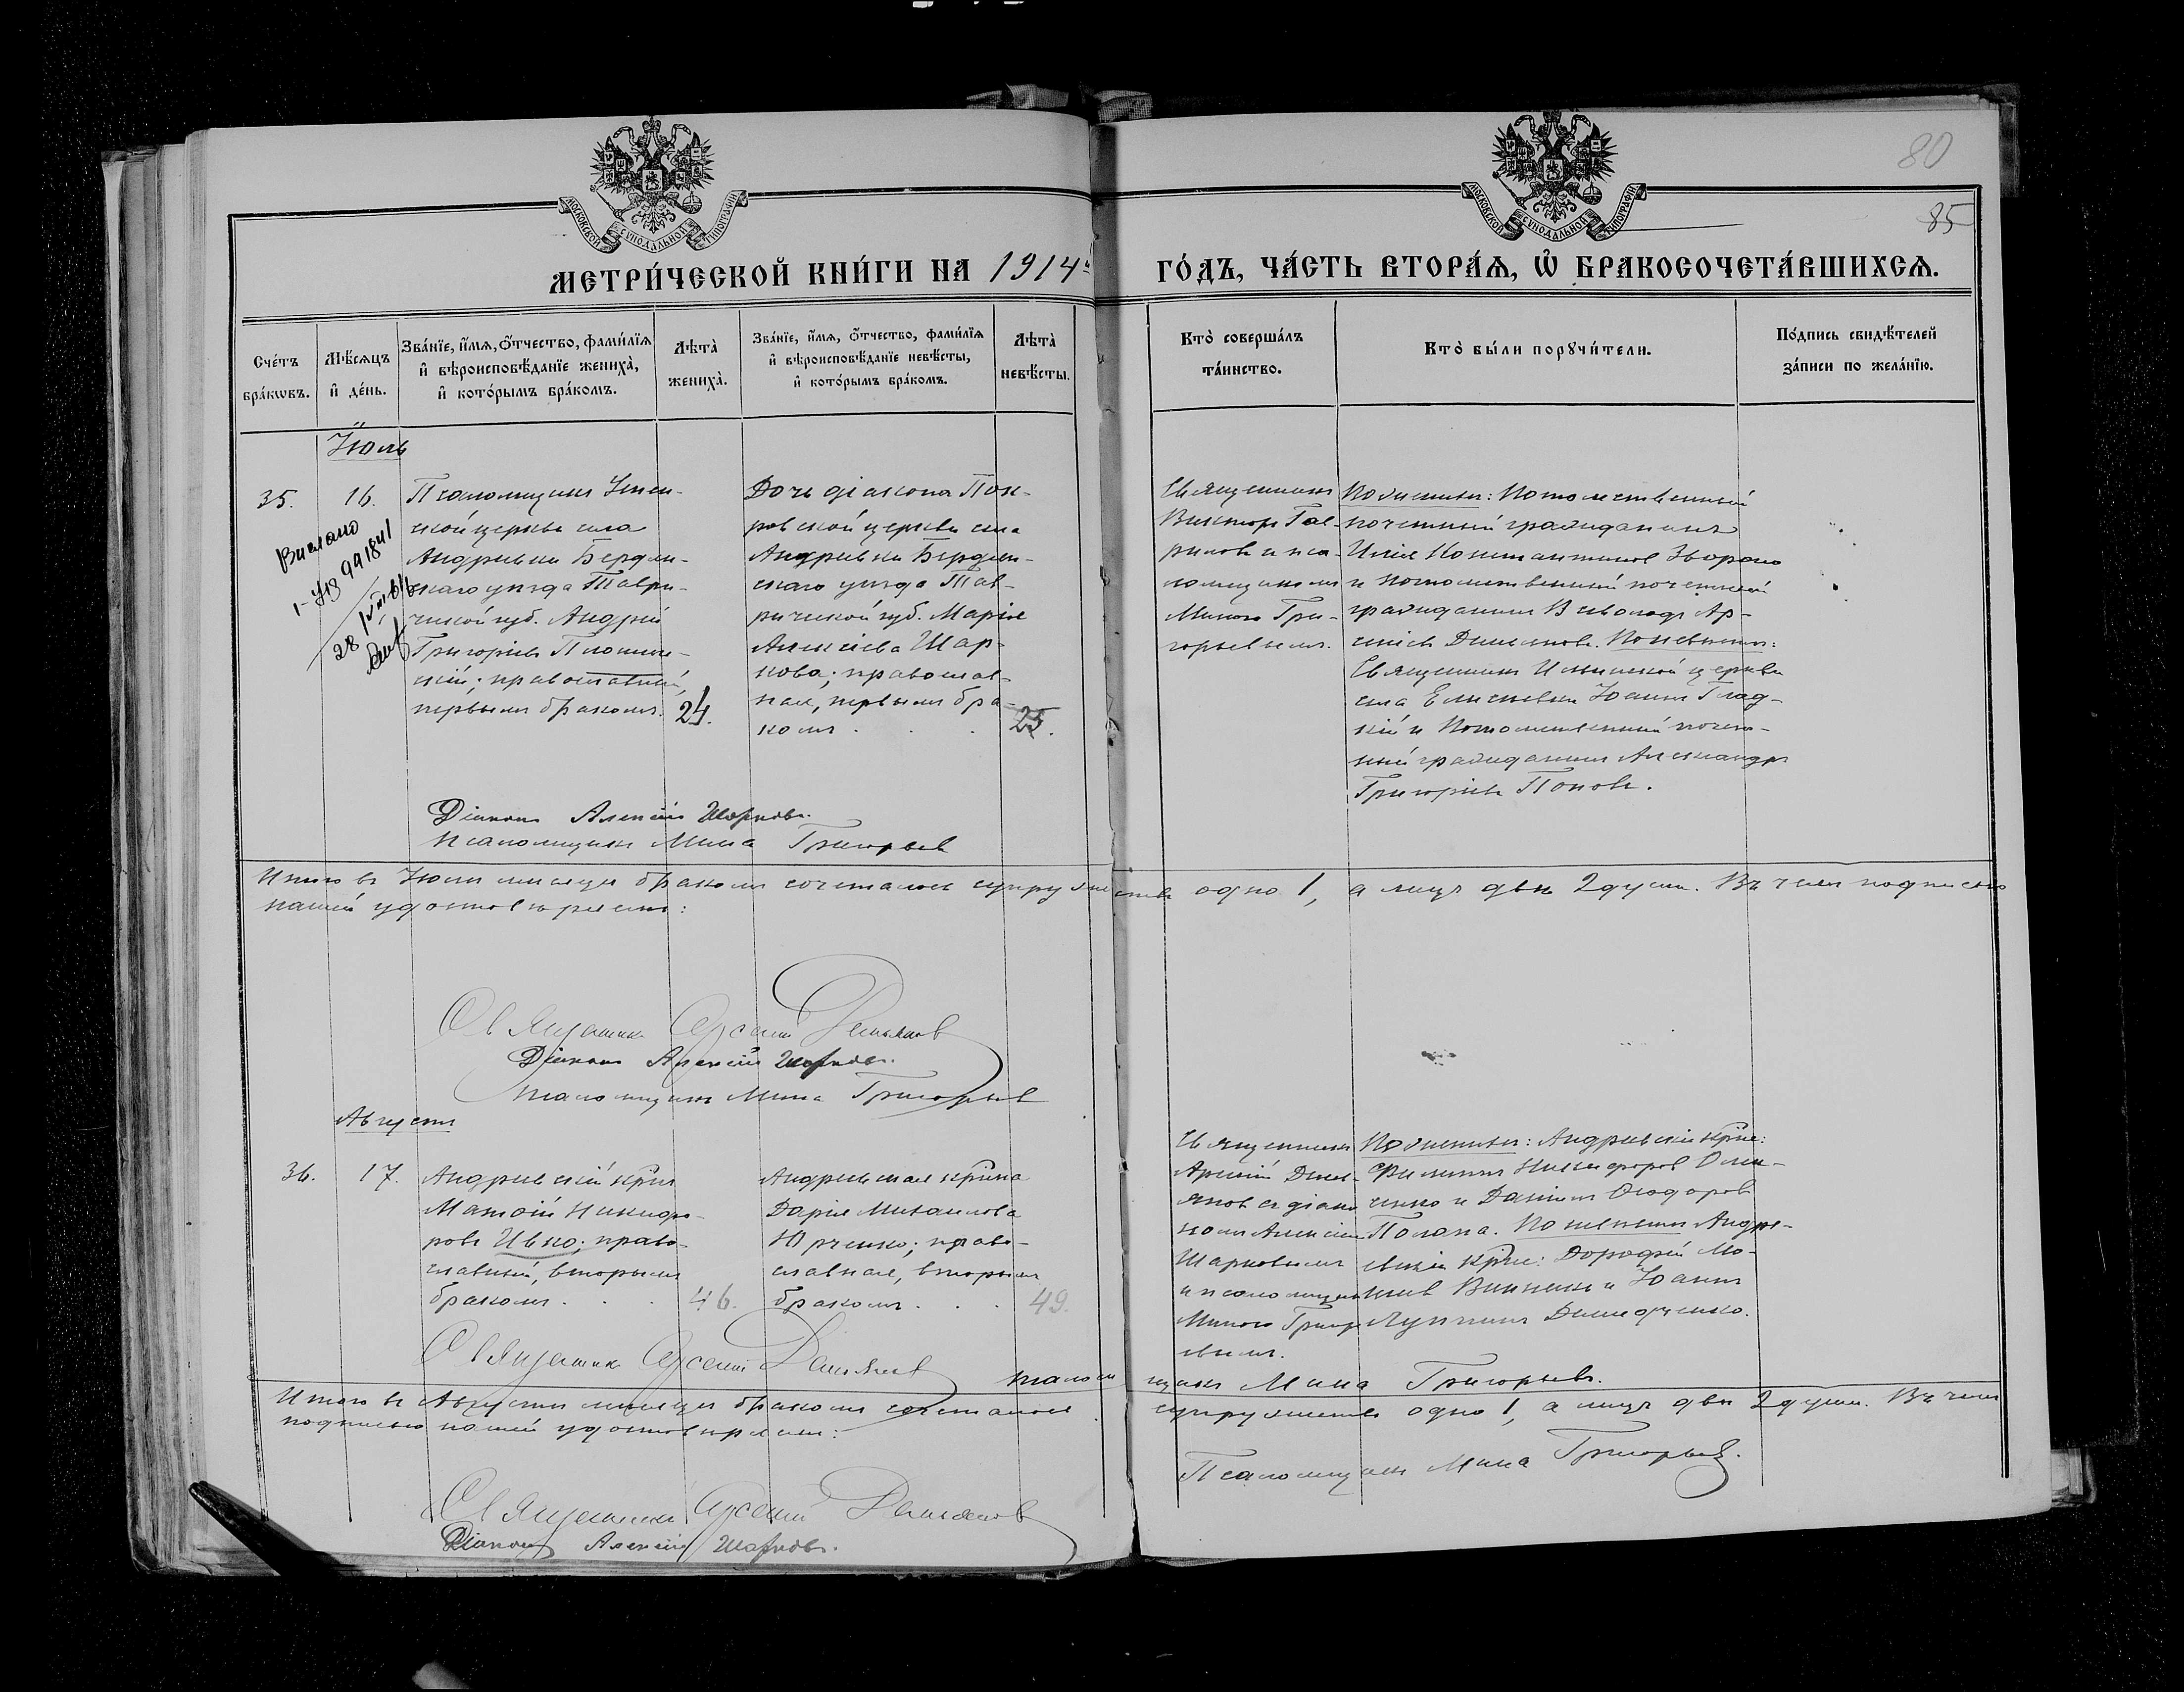 80
85
МОСКОВСКОЙ СѴНОДАЛЬНОЙ ТИПОГРАФІИ
МОСКОВСКОЙ СѴНОДАЛЬНОЙ ТИПОГРАФІИ
МЕТРИ́ЧЕСКОЙ КНИ́ГИ НА 1914й ГО́ДЪ, ЧА́СТЬ ВТОРА́Ѧ, Ѽ БРАКОСОЧЕТА́ВШИХСѦ.
Сче́тъ бра́кѡвъ.
Мѣ́сѧцъ и҆ де́нь.
Зва́нїе, и҆́мѧ, ѻ҆́тчество, фами́лїѧ
и҆ вѣроисповѣ́данїе жениха̀,
и҆ кото́рымъ бра́комъ.
Лѣта̀ жениха̀.
Зва́нїе, и҆́мѧ, ѻ҆́тчество, фами́лїѧ
и҆ вѣроисповѣ́данїе невѣ́сты,
и҆ кото́рымъ бра́комъ.
Лѣта̀ невѣ́сты.
Кто̀ соверша́лъ та́инство.
Кто̀ бы́ли порꙋчи́тели.
По́дпись свидѣ́телей за́писи по жела́нїю.
Іюль
35.
16.
Псаломщикъ
ской церкви села
Андреевки Бердян-
скаго уѣзда Таври-
ческой губ. Андрей
Григорьевъ
скій; православный,
первымъ бракомъ.
24.
Дочь діакона Пок-
ровской церкви села
Андреевки Бердян-
скаго уѣзда Тав-
рической губ. Марія
Алексіева Шар-
кова; православ-
ная, первымъ бра-
комъ . . .
25.
Священникъ
Викторъ Гав-
риловъ и пса-
ломщикомъ
Миною Гри-
горьевымъ.
По женихѣ: Потомственный
почетный гражданинъ
Илія Константиновъ
и потомственный почетный
гражданинъ Всеволодъ Ар-
сеніевъ Демьяновъ. По невѣстѣ:
Священникъ Ильинской церкви
села Елисеевки Іоаннъ Глад-
кій и Потомственный почет-
ный гражданинъ Александръ
Григорьевъ Поповъ.
Діаконъ Алексій Шарковъ.
Псаломщикъ Мина Григорьевъ
Итого въ Іюлѣ мѣсяцѣ бракомъ сочеталось супружество одно 1, а лицъ двѣ 2 души. Въ чемъ подписью
нашей удостовѣряемъ:
Священникъ Арсеній Демьяновъ
Діаконъ Алексій Шарковъ.
Псаломщикъ Мина Григорьевъ
Августъ
36.
17.
Андреевскій крнъ
Матѳій Никифо-
ровъ Ивко; право-
славный, вторымъ
бракомъ . . .
46.
Андреевская крнка
Дарія Михаилова
Юрченко; право-
славная, вторымъ
бракомъ . . .
49.
Священникъ
Арсеній Демь-
яновъ съ діако-
номъ Алексіемъ
Шарковымъ
и псаломщикомъ
Миною Григор-
евымъ.
По женихѣ: Андреевскіе крне:
Филиппъ Никифоровъ
и Даніилъ Ѳеодоровъ
По невѣстѣ: Андре-
евскіе крне: Дорофей
и Іоаннъ
Священникъ Арсеній Демьяновъ
Псаломщикъ Мина Григорьевъ.
Итого въ Августѣ мѣсяцѣ бракомъ сочеталось супружество одно 1, а лицъ двѣ 2 души. Въ чемъ
подписью нашей удостовѣряемъ:
Псаломщикъ Мина Григорьевъ.
Священникъ Арсеній Демьяновъ
Діаконъ Алексій Шарковъ.